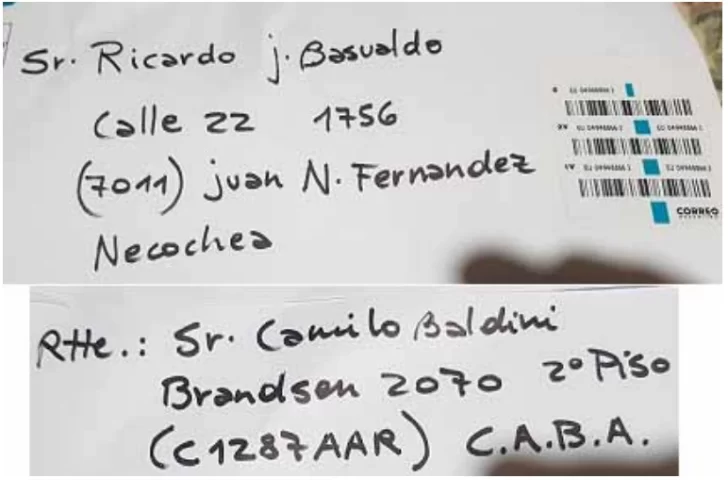 Sr. Ricardo j. Basualdo
Calle 22 1756
(7011) juan N. Fernandez
Necochea
CORREO
RHe.: Sr. Camilo Baldini
Brandsen 2070 2º Piso
(C1287AAR) C.A.B.A.